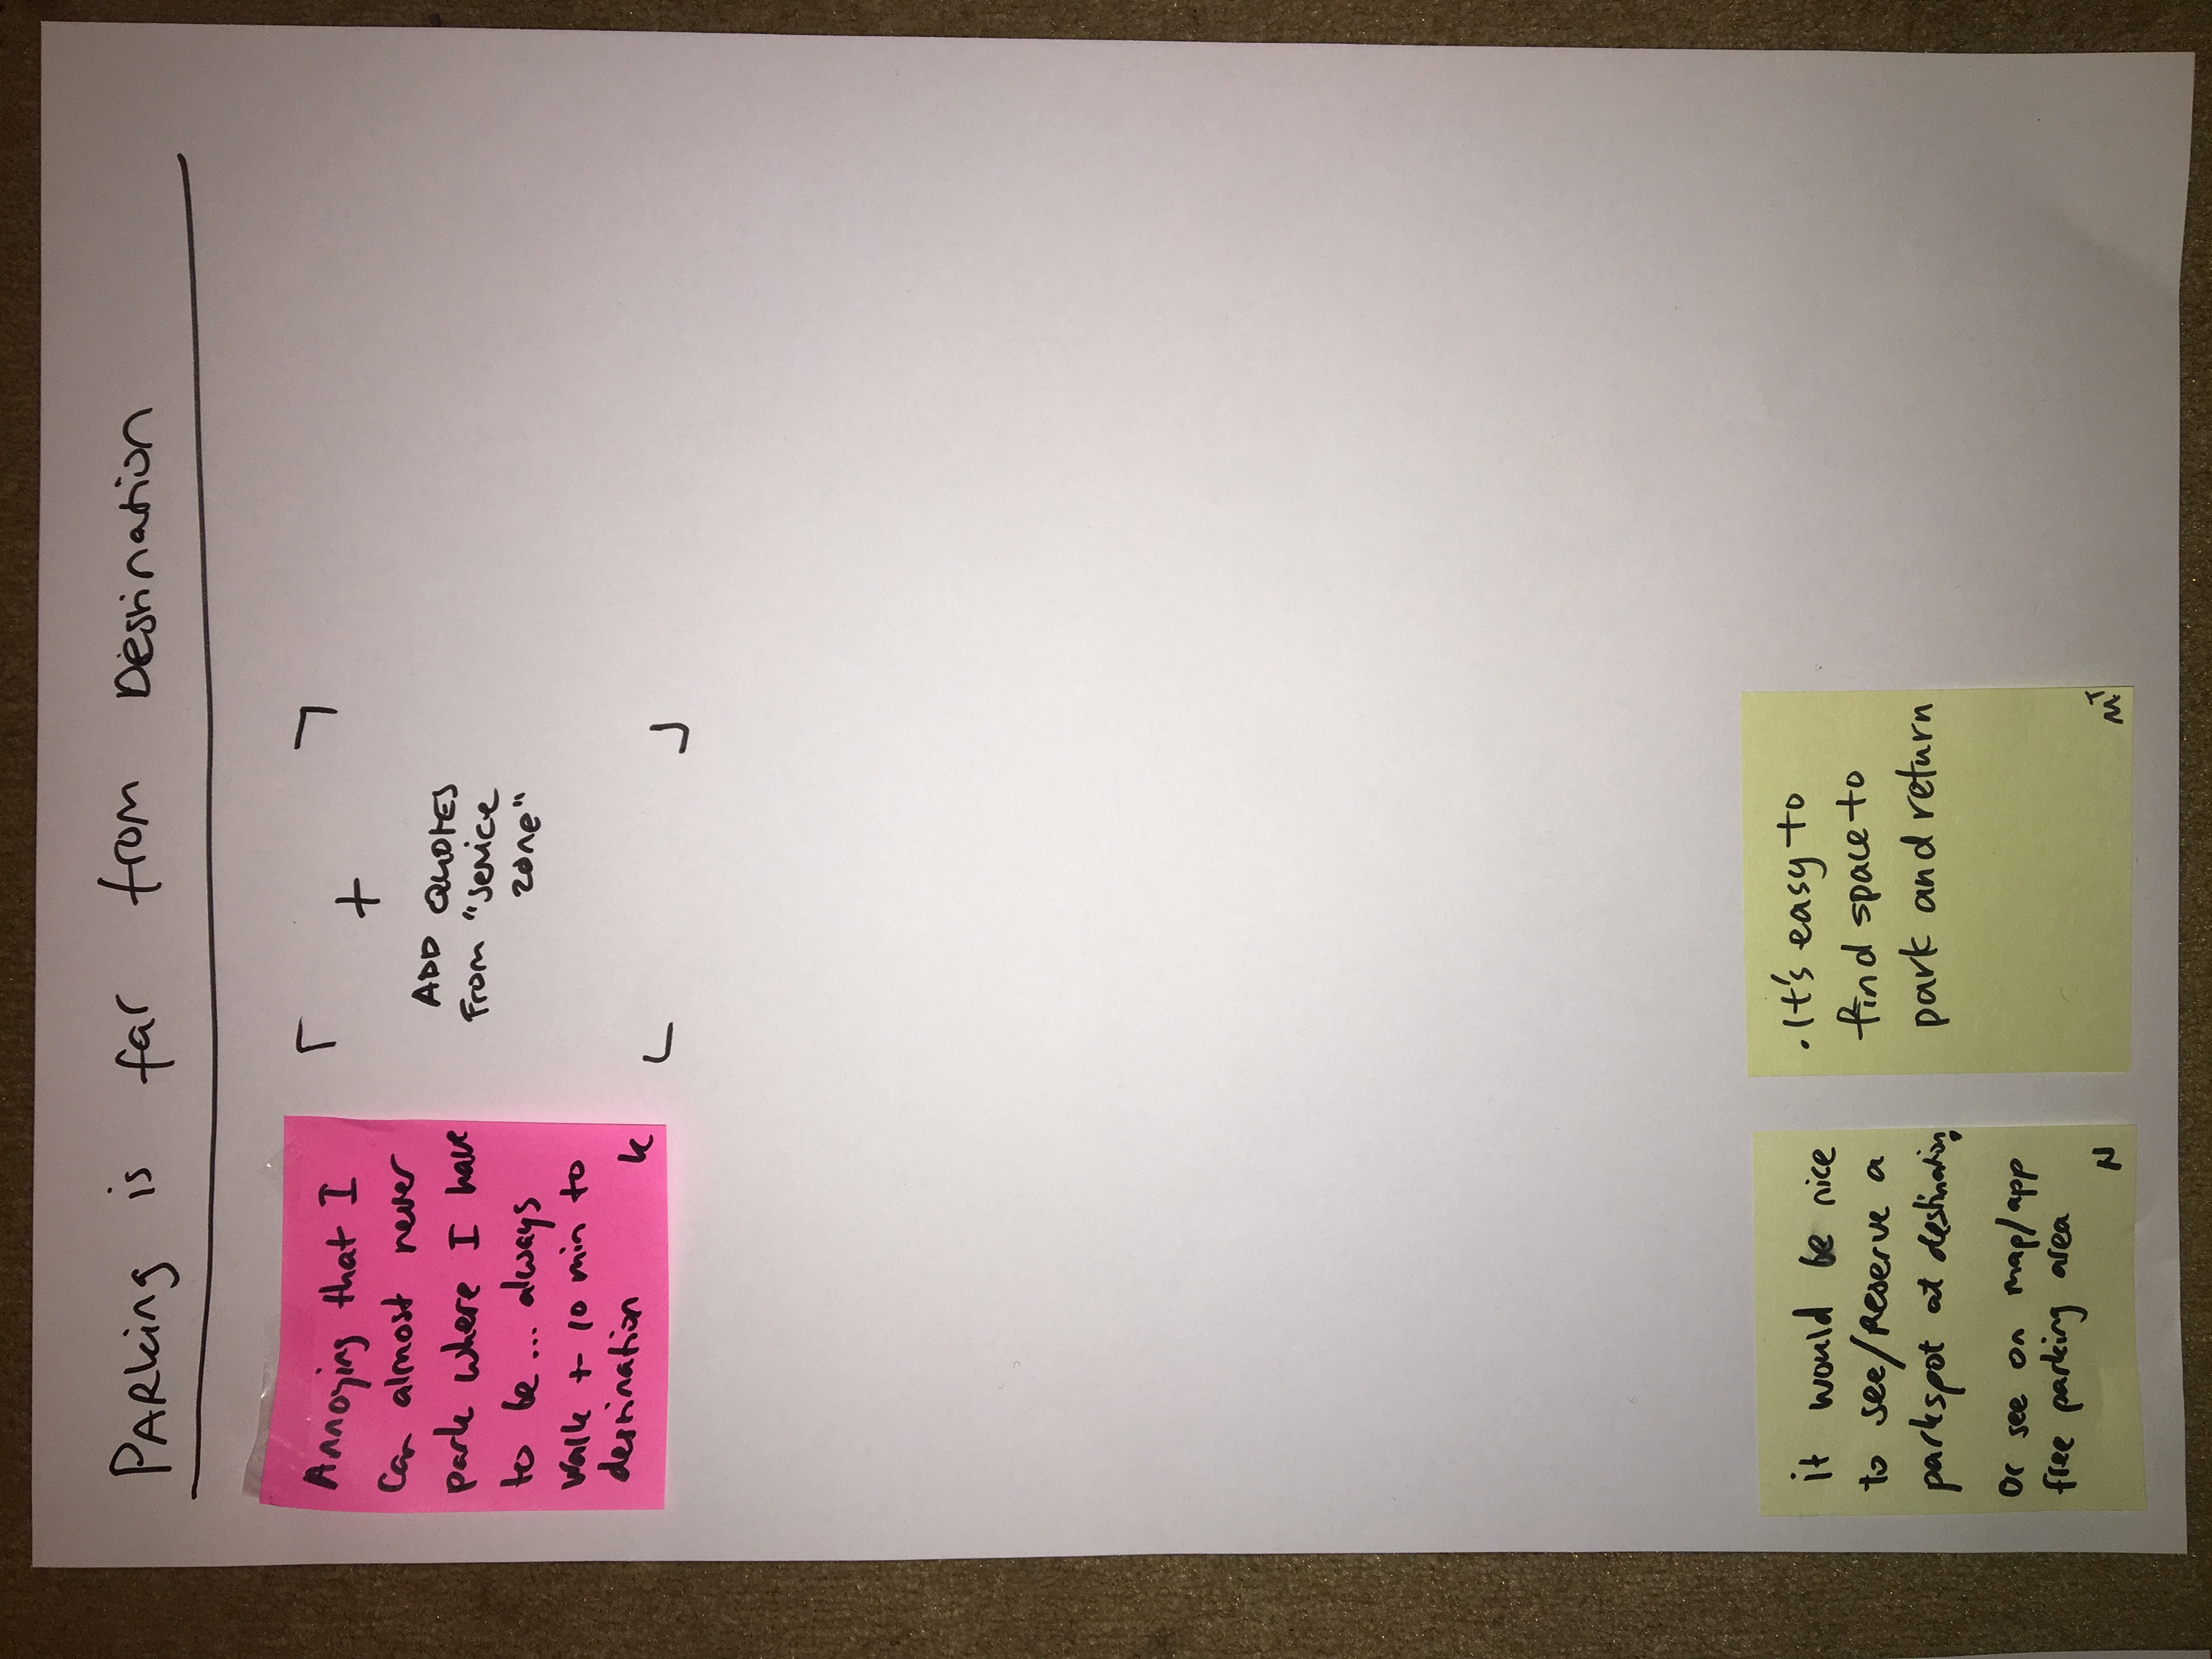 PARking is far from Destination
Annoying that I
Can almost never
park where I have
to be... always
walk + 10 min to
destination
K
+
ADD QUOTES
From "service
zone"
it would be nice
to see/Reserve a
parkspot at destination.
Or see on map/app
free parking area
N
.It's easy to
find space to
park and return
MT